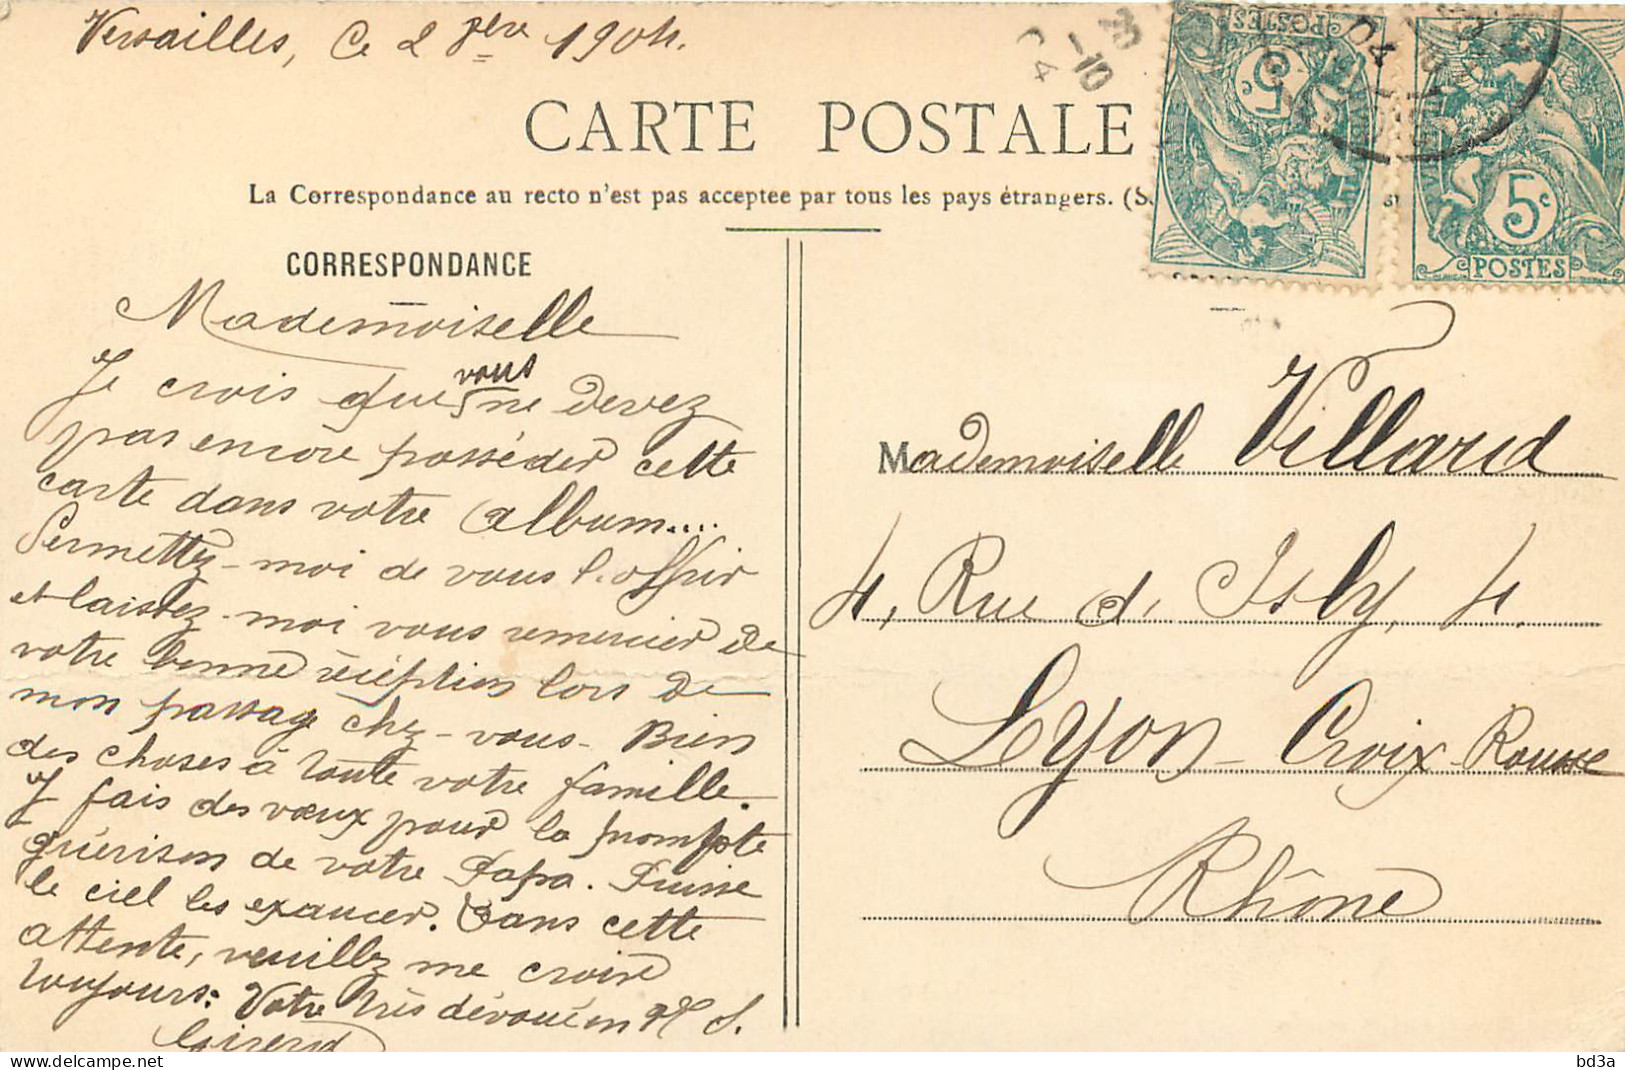 Versailles, Ce 2 9bre 1904.
CARTE POSTALE
La Correspondance au recto n'est pas acceptee par tous les pays étrangers. (S
5c POSTES
5c POSTES
CORRESPONDANCE
Mademoiselle
Je crois que vous ne devez
pas encore posséder cette
carte dans votre album....
Permettez-moi de vous l'offrir
et laissez-moi vous remercier de
votre bonne réception lors de
mon passage chez-vous. Bien
des choses à toute votre famille.
Je fais des vœux pour la prompte
guérison de votre Papa. Puisse
le ciel les exaucer. Dans cette
attente, veuillez me croire
toujours: Votre très dévoué en N. S.
Girerd
Mademoiselle Villard
4, Rue d'Isly, 4.
Lyon-Croix-Rousse
Rhône
bd3a